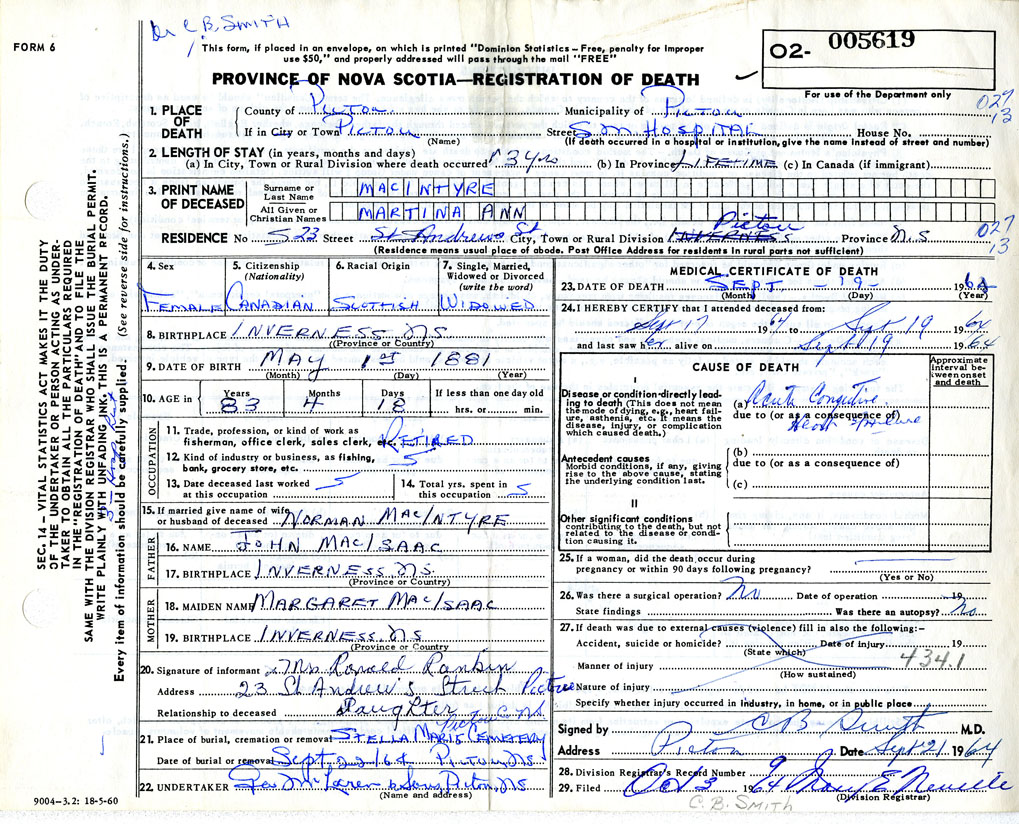 Dr C. B. SMITH
FORM 6
This form, if placed in an envelope, on which is printed "Dominion Statistics – Free, penalty for improper
use $50," and properly addressed will pass through the mail "FREE"
O2- 005619
PROVINCE OF NOVA SCOTIA—REGISTRATION OF DEATH
For use of the Department only
027
13
1. PLACE OF DEATH
County of Pictou Municipality of Pictou
If in City or Town Pictou Street S M HOSPITAL House No.
(Name) (If death occurred in a hospital or institution, give the name instead of street and number)
2. LENGTH OF STAY (in years, months and days)
(a) In City, Town or Rural Division where death occurred 3 yrs (b) In Province LIFETIME (c) In Canada (if immigrant)
3. PRINT NAME OF DECEASED
Surname or Last Name MACINTYRE
All Given or Christian Names MARTINA ANN
Pictou
027
13
RESIDENCE No 23 Street St Andrews St City, Town or Rural Division INVERNESS Province N.S
(Residence means usual place of abode. Post Office Address for residents in rural parts not sufficient)
4. Sex
FEMALE
5. Citizenship (Nationality)
CANADIAN
6. Racial Origin
SCOTTISH
7. Single, Married, Widowed or Divorced (write the word)
WIDOWED
8. BIRTHPLACE INVERNESS N.S
(Province or Country)
9. DATE OF BIRTH MAY 1st 1881
(Month) (Day) (Year)
10. AGE in Years 83 Months 4 Days 18 If less than one day old hrs. or min.
OCCUPATION
11. Trade, profession, or kind of work as fisherman, office clerk, sales clerk, etc. RETIRED
12. Kind of industry or business, as fishing, bank, grocery store, etc.
13. Date deceased last worked at this occupation
14. Total yrs. spent in this occupation
15. If married give name of wife or husband of deceased NORMAN MACINTYRE
FATHER
16. NAME JOHN MACISAAC
17. BIRTHPLACE INVERNESS N.S.
(Province or Country)
MOTHER
18. MAIDEN NAME MARGARET MACISAAC
19. BIRTHPLACE INVERNESS N.S
(Province or Country)
20. Signature of informant Mrs Ronald Rankin
Address 23 St Andrew's Street Pictou
Relationship to deceased Daughter
Pictou C. N.S.
21. Place of burial, cremation or removal STELLA MARIS CEMETERY
Date of burial or removal Sept 64 Pictou, NS
22. UNDERTAKER Geo McLaren & Sons Pictou, NS
(Name and address)
MEDICAL CERTIFICATE OF DEATH
23. DATE OF DEATH SEPT - 19 - 1964
(Month) (Day) (Year)
24. I HEREBY CERTIFY that I attended deceased from:
Sept 17 1964 to Sept 19 1964
and last saw her alive on Sept 19 1964
CAUSE OF DEATH
Approximate interval between onset and death
I
Disease or condition directly leading to death (This does not mean the mode of dying, e.g., heart failure, asthenia, etc. It means the disease, injury, or complication which caused death.)
(a) Acute Congestive
due to (or as a consequence of)
Heart Failure
Antecedent causes
Morbid conditions, if any, giving rise to the above cause, stating the underlying condition last.
(b)
due to (or as a consequence of)
(c)
II
Other significant conditions contributing to the death, but not related to the disease or condition causing it.
25. If a woman, did the death occur during pregnancy or within 90 days following pregnancy?
(Yes or No)
26. Was there a surgical operation? No Date of operation 19
State findings Was there an autopsy? No
27. If death was due to external causes (violence) fill in also the following:–
Accident, suicide or homicide? Date of injury 19
(State which)
434.1
Manner of injury
(How sustained)
Nature of injury
Specify whether injury occurred in industry, in home, or in public place
Signed by C B Smith M.D.
Address Pictou Date Sept 21 1964
28. Division Registrar's Record Number 9
29. Filed Oct 3 1964 Mary E
(Division Registrar)
C. B. SMITH
SEC. 14 – VITAL STATISTICS ACT MAKES IT THE DUTY
OF THE UNDERTAKER OR PERSON ACTING AS UNDER-
TAKER TO OBTAIN ALL THE PARTICULARS REQUIRED
IN THE "REGISTRATION OF DEATH" AND TO FILE THE
SAME WITH THE DIVISION REGISTRAR WHO SHALL ISSUE THE BURIAL PERMIT.
WRITE PLAINLY WITH UNFADING INK. THIS IS A PERMANENT RECORD.
Every item of information should be carefully supplied. (See reverse side for instructions.)
9004–3.2: 18-5-60